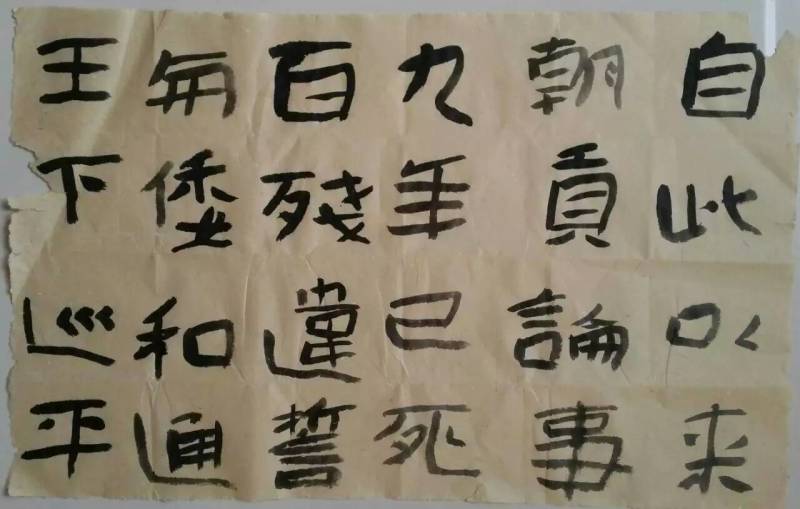 自此以来
朝貢論事
九年己死
百殘違誓
毎倭和通
王下巡平